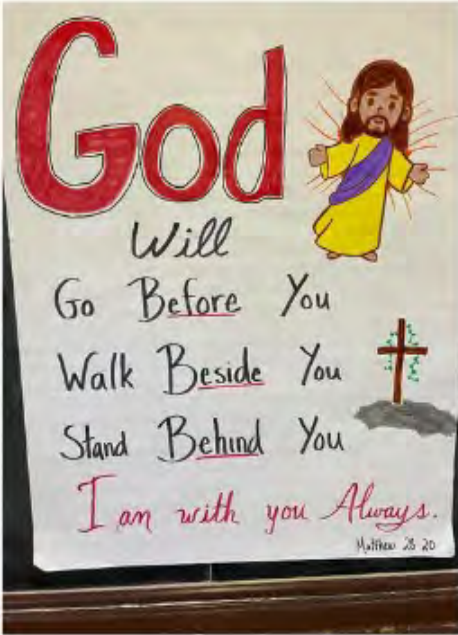 God
Will
Go Before You
Walk Beside You
Stand Behind You
I am with you Always.
Matthew 28 20